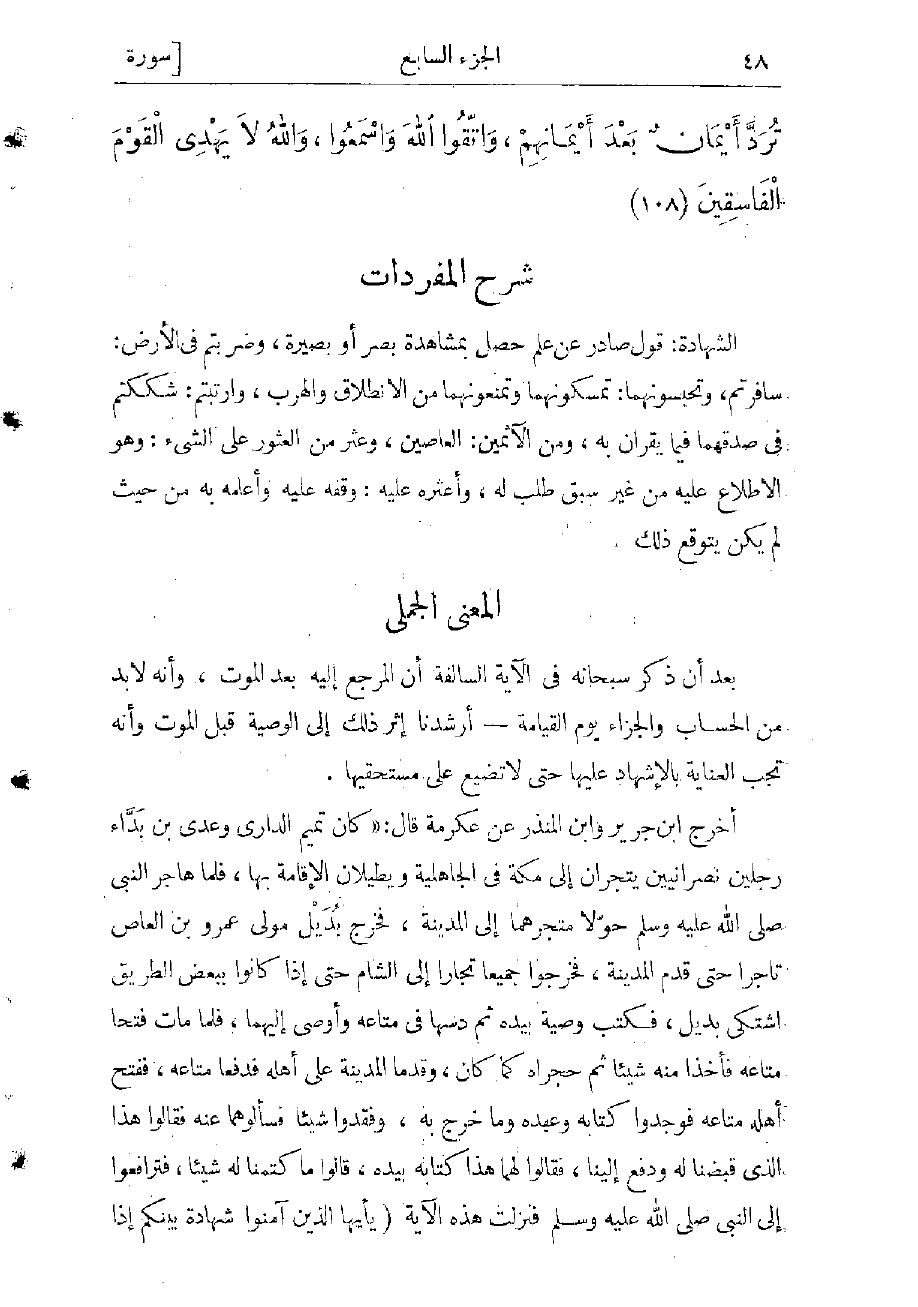 ٤٨ الجزء السابع [سورة
تُرَدَّ أَيْمَانٌ بَعْدَ أَيْمَانِهِمْ، وَاتَّقُوا اللهَ وَاسْمَعُوا، وَاللهُ لاَ يَهْدِى الْقَوْمَ
الْفَاسِقِينَ (١٠٨)
شرح المفردات
الشهادة: قول صادر عن علم حصل بمشاهدة بصر أو بصيرة، وضربتم فى الأرض:
سافرتم، وتحبسونهما: تمسكونهما وتمنعونهما من الانطلاق والهرب، وارتبتم: شككتم
فى صدقهما فيما يقران به، ومن الآثمين: العاصين، وعثر من العثور على الشىء: وهو
الاطلاع عليه من غير سبق طلب له، وأعثره عليه: وقفه عليه وأعلمه به من حيث
لم يكن يتوقع ذلك.
المعنى الجملى
بعد أن ذكر سبحانه فى الآية السالفة أن المرجع إليه بعد الموت، وأنه لابد
من الحساب والجزاء يوم القيامة — أرشدنا إثر ذلك إلى الوصية قبل الموت وأنه
تجب العناية بالإشهاد عليها حتى لاتضيع على مستحقيها.
أخرج ابن جرير وابن المنذر عن عكرمة قال: «كان تميم الدارى وعدى بن بَدَّاء
رجلين نصرانيين يتجران إلى مكة فى الجاهلية ويطيلان الإقامة بها، فلما هاجر النبى
صلى الله عليه وسلم حوّلا متجرهما إلى المدينة، فخرج بُدَيْل مولى عمرو بن العاص
تاجرا حتى قدم المدينة، فخرجوا جميعا تجارا إلى الشام حتى إذا كانوا ببعض الطريق
اشتكى بديل، فكتب وصية بيده ثم دسها فى متاعه وأوصى إليهما، فلما مات فتحا
متاعه فأخذا منه شيئا ثم حجراه كما كان، وقدما المدينة على أهله فدفعا متاعه، ففتح
أهله متاعه فوجدوا كتابه وعهده وما خرج به، وفقدوا شيئا فسألوهما عنه فقالوا هذا
الذى قبضنا له ودفع إلينا، فقالوا لهما هذا كتابه بيده، قالوا ما كتمنا له شيئا، فترافعوا
إلى النبى صلى الله عليه وسلم فنزلت هذه الآية (يأيها الذين آمنوا شهادة بينكم إذا